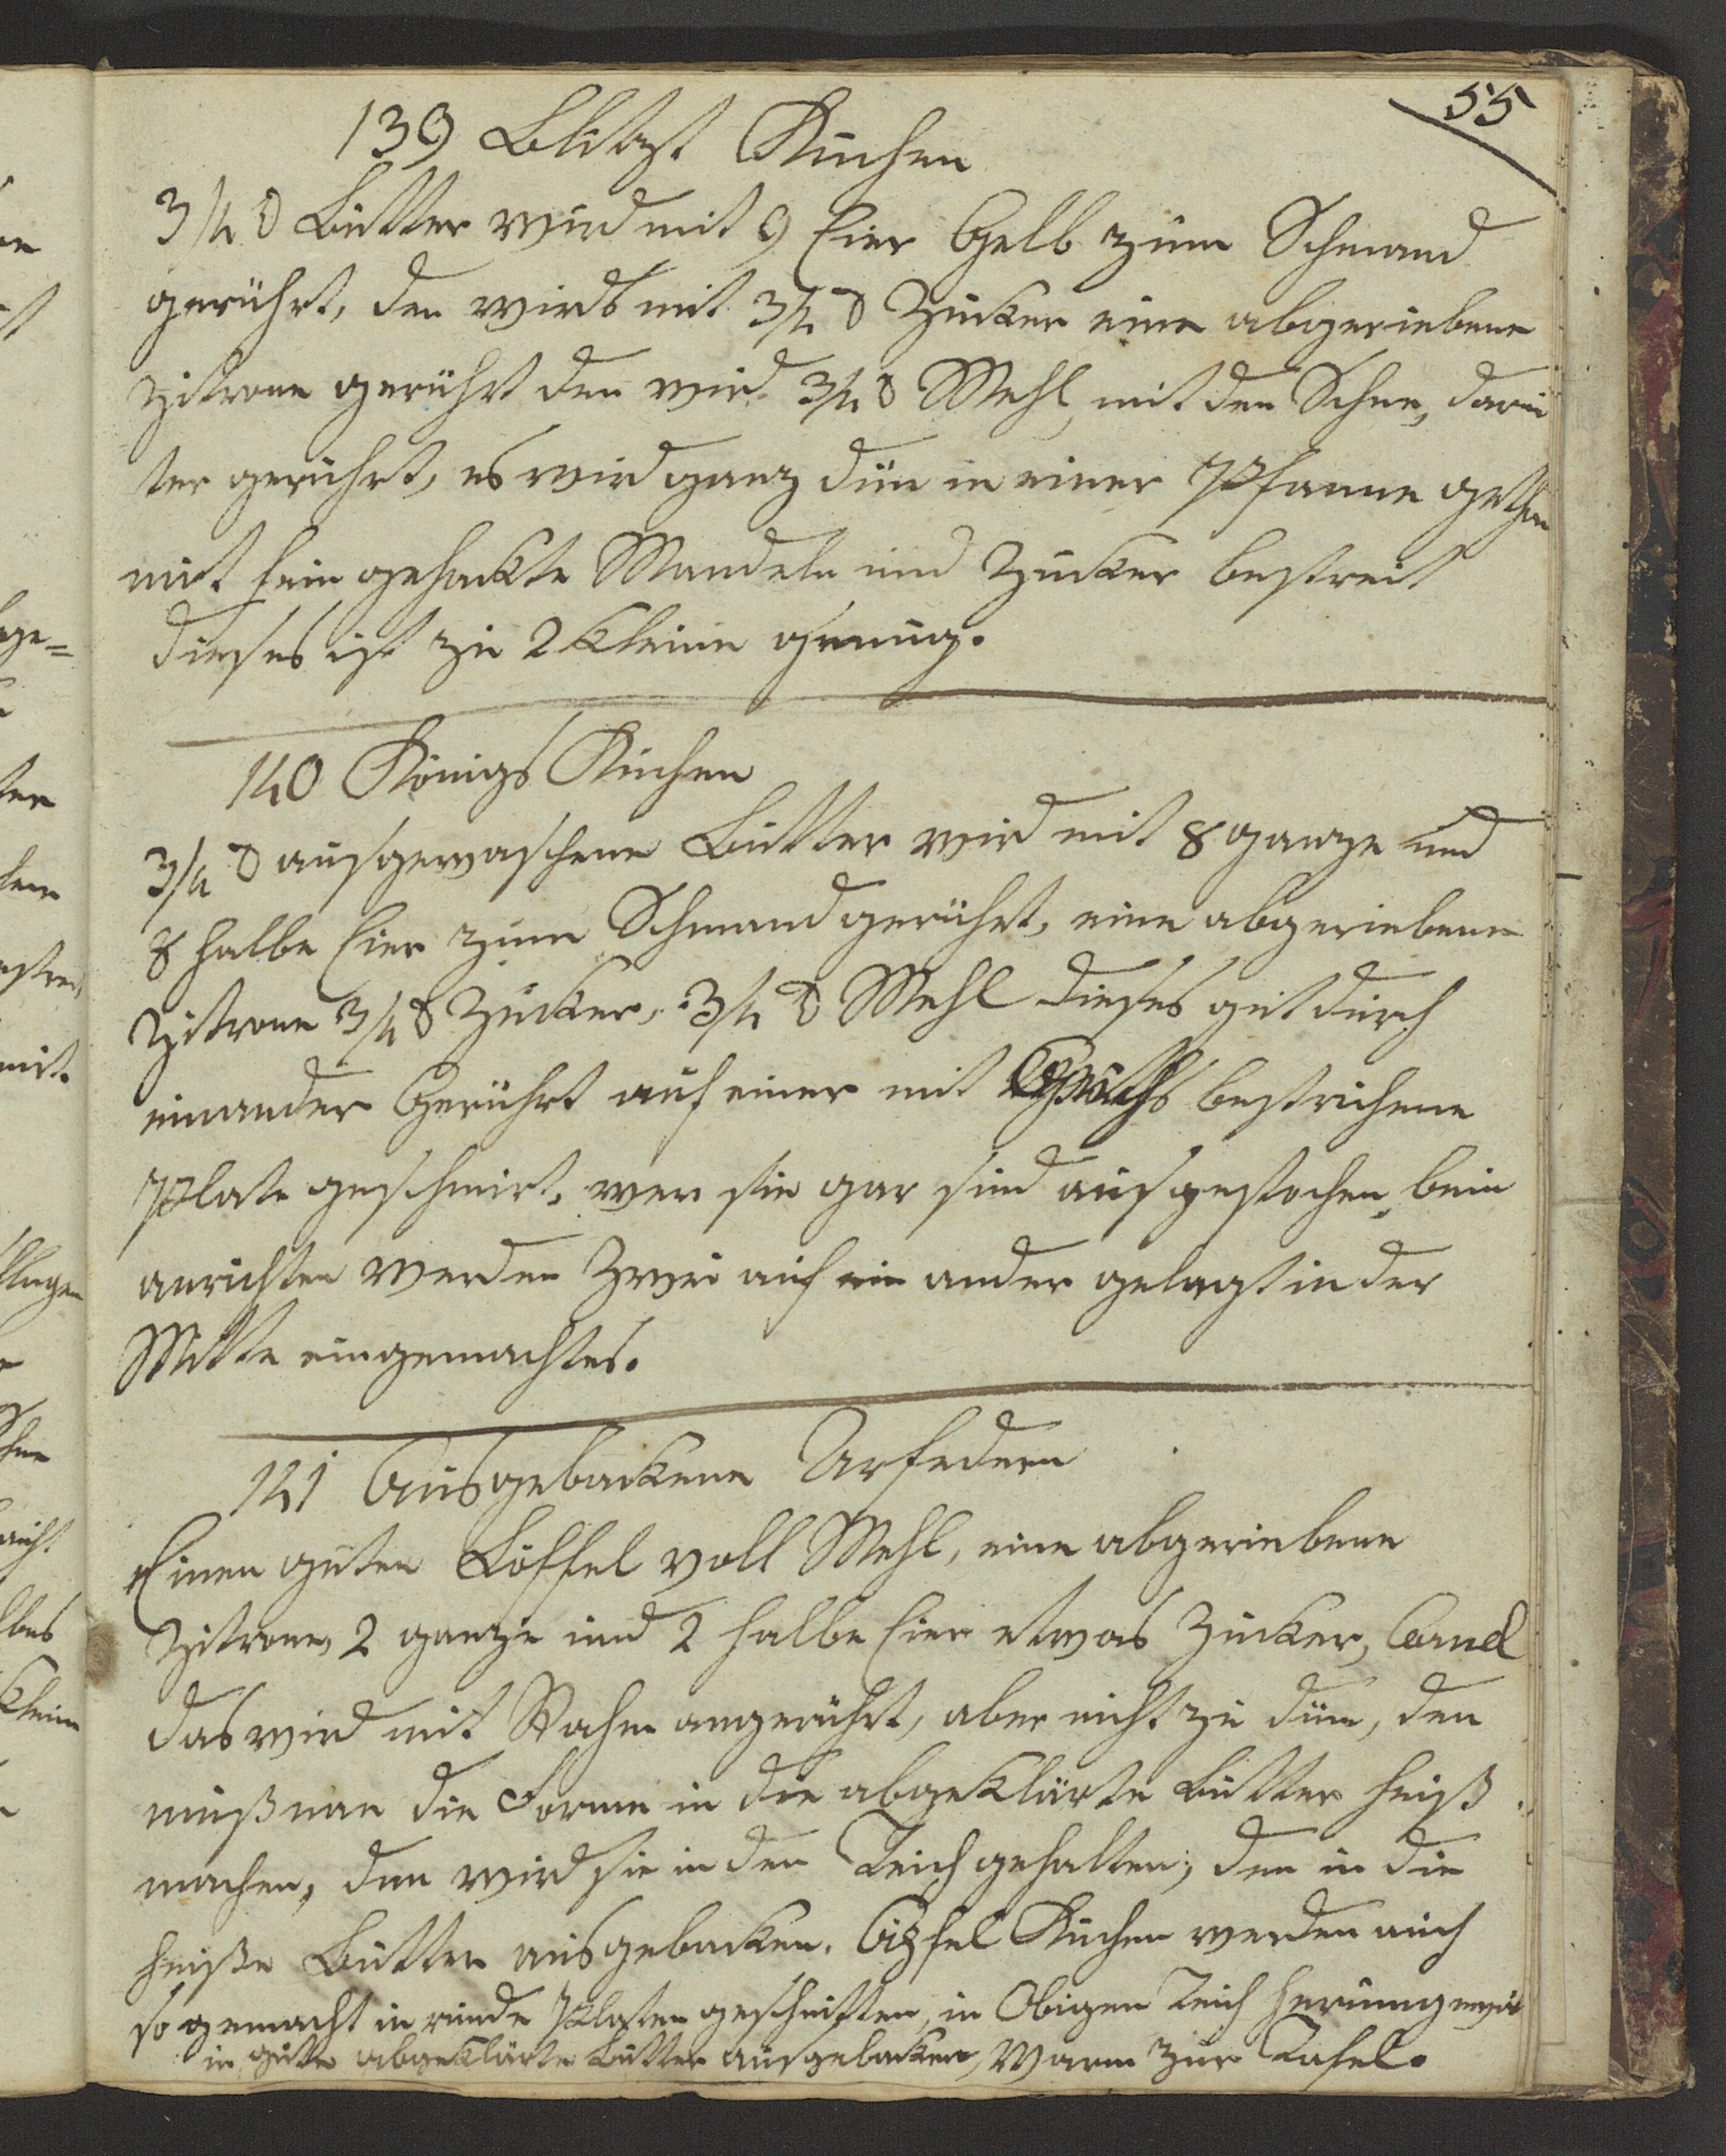 55
139 Blitzt Kuchen
3/4 ℔ Butter wird mit 9 Eier Gelb zum Schmand
gerührt, den wirds mit 3/4 ℔ Zucker eine abgeriebene
Zitrone gerührt den wird 3/4 ℔ Mehl mit den Schne, darun
ter gerührt, es wird ganz dün in einer Pfanne gethan
mit fein gehackte Mandeln und Zucker bestreut
dieses ist zu 2 kleine genug.
140 Königs Kuchen
3/4 ℔ ausgewaschene Butter wird mit 8 ganze und
8 halbe Eier zum Schmand gerührt, eine abgeriebene
Zitrone 3/4 ℔ Zucker, 3/4 ℔ Mehl dieses gut durch
einander Gerührt auf einer mit bestrichene
Plate geschmirt, wen sie gar sind ausgestochen, beim
anrichten werden Zwei auf ein ander gelegt in der
Mitte eingemachtes.
141 Ausgebackene
Einen guten Löffel voll Mehl, eine abgeriebene
Zitrone, 2 ganze und 2 halbe Eier etwas Zucker, Canel
das wird mit Rahm angerührt, aber nicht zu dün, den
muß man die Forme in die abgeklärte Butter heiß
machen, den wird sie in den Teich gehalten, den in die
heiße Butter ausgebacken. Apfel Kuchen werden auch
so gemacht in runde Platen geschnitten, in Obigen Teich
in gute abgeklärte Butter ausgebacken, Warm zur Tafel.